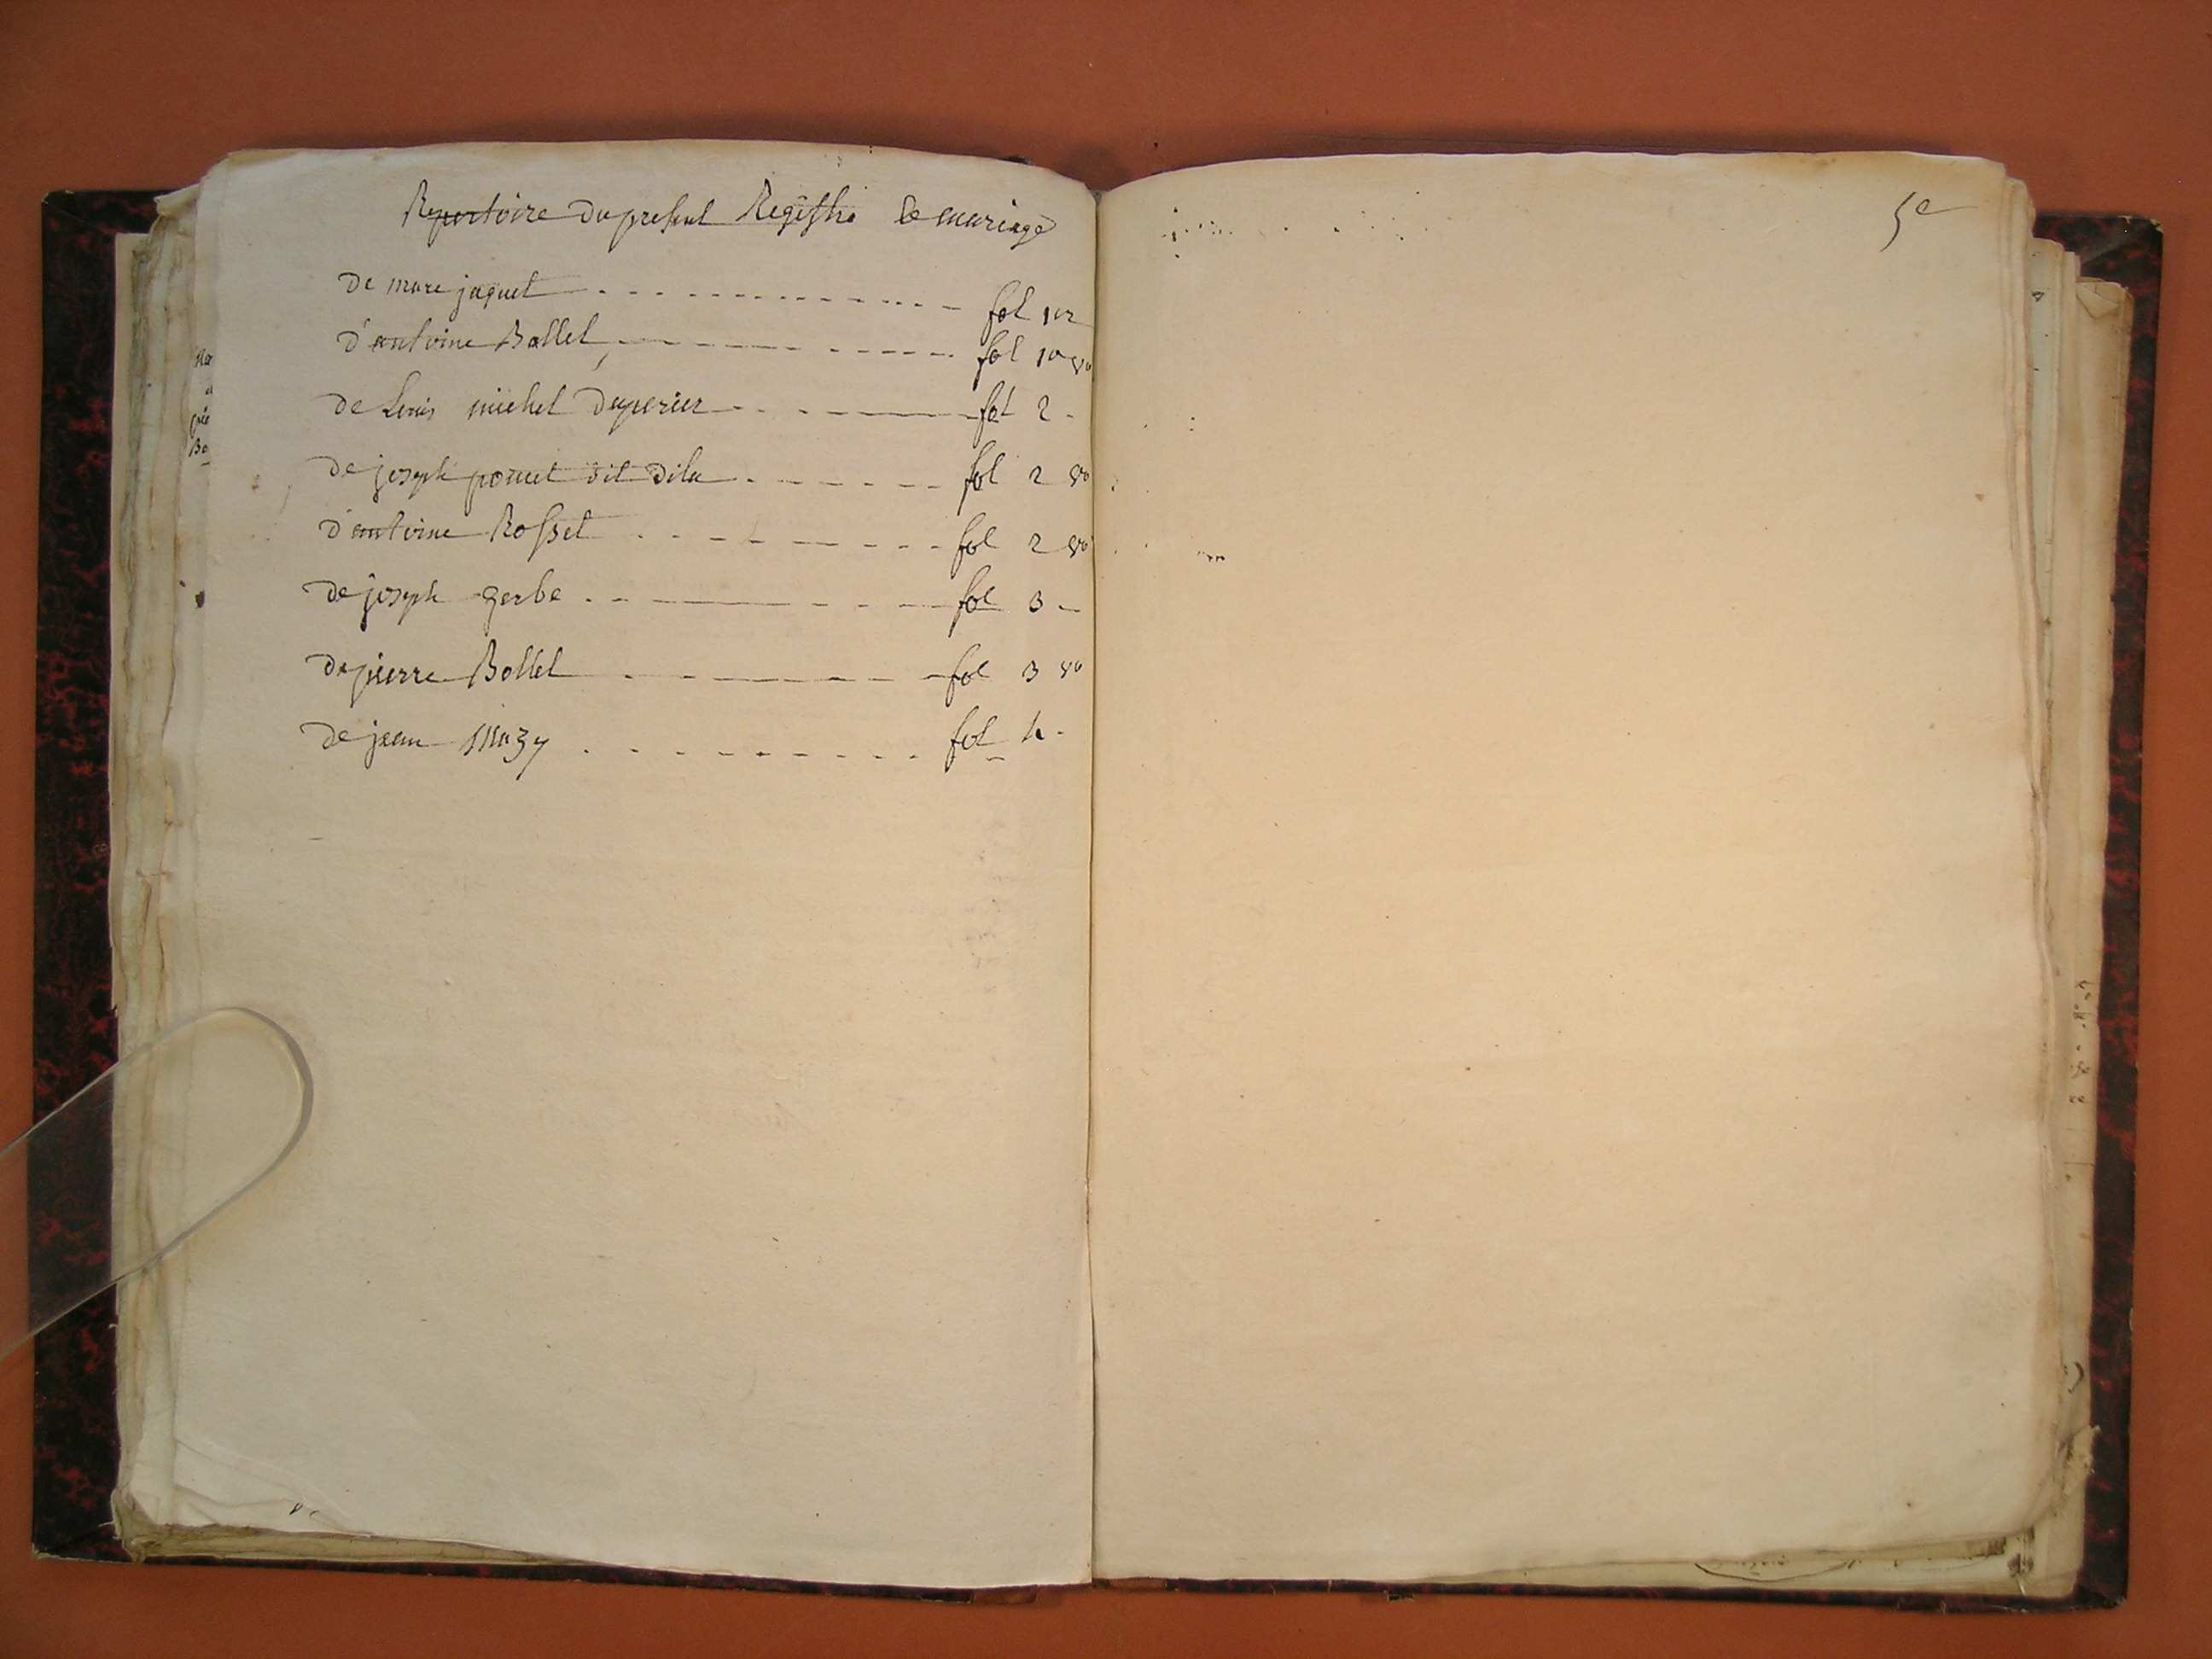 Repertoire du present Registre de mariage
de marc jaquet fol 1er
d'antoine Bollet fol 1er vo
de Louis michel Duperier fol 2
de joseph poncet dit dila fol 2 vo
d'antoine Rosset fol 2 vo
de joseph gerbe fol 3
de pierre Bollet fol 3 vo
de jean Mazy fol 4
5e